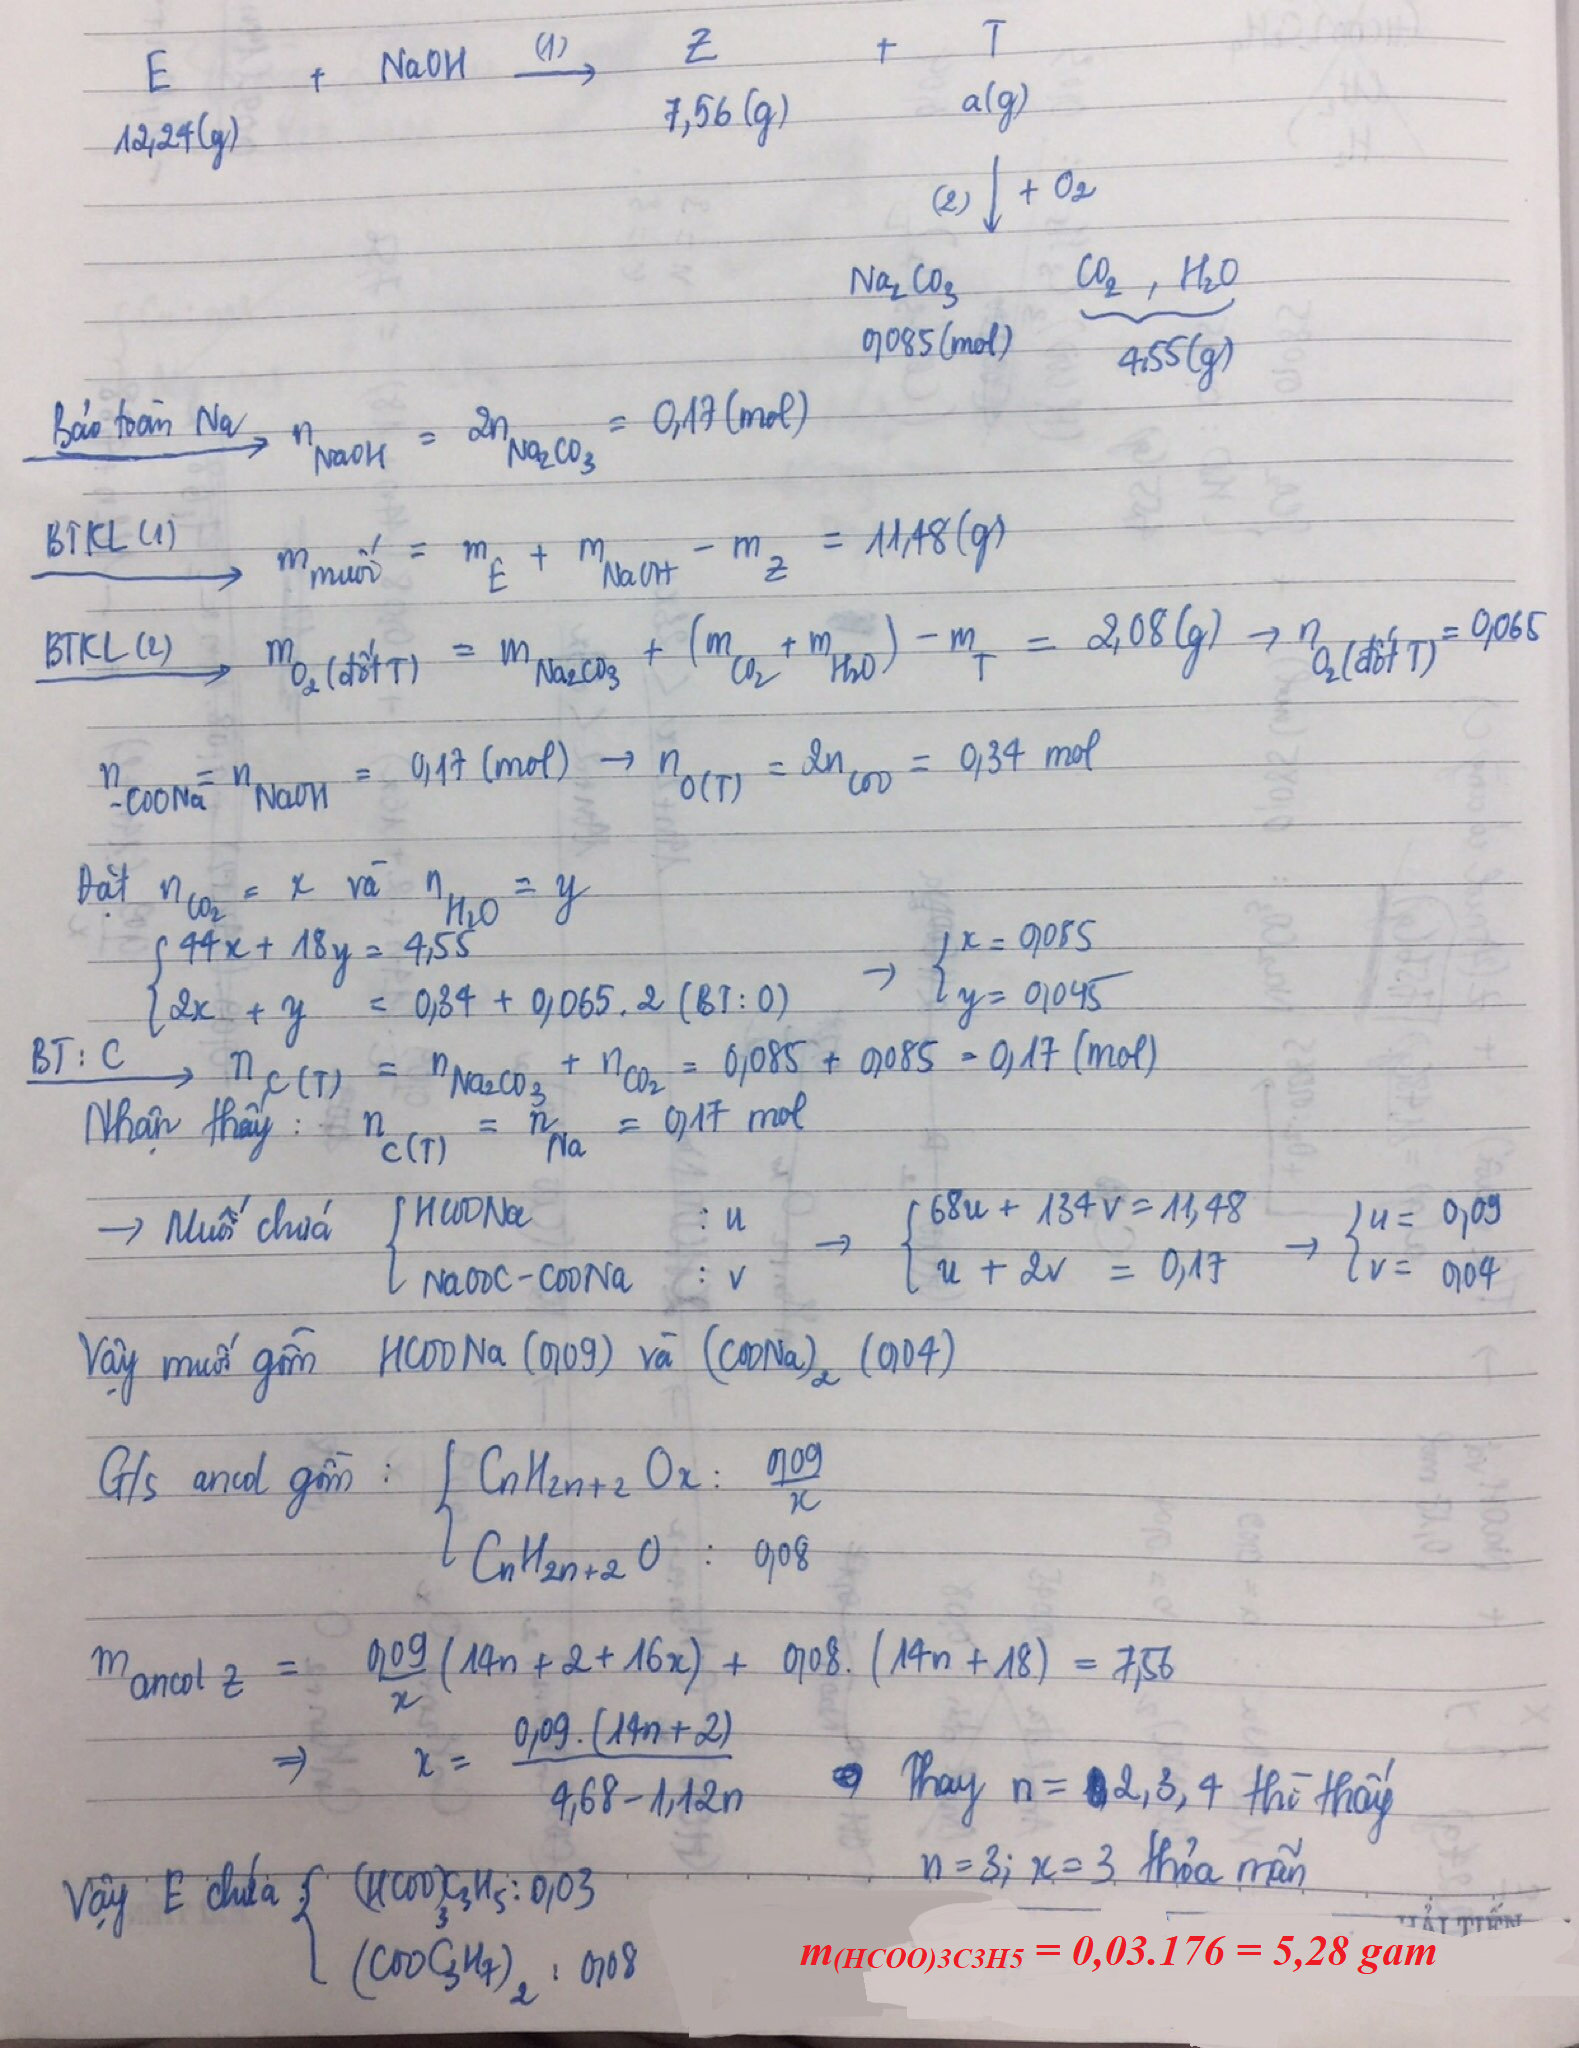 E + NaOH (1) → Z + T
12,24(g) 7,56(g) a(g)
(2) ↓ + O₂
Na₂CO₃ CO₂, H₂O
0,085(mol) 4,55(g)
Bảo toàn Na → n NaOH = 2n Na₂CO₃ = 0,17(mol)
BTKL(1) → m muối = m E + m NaOH - m Z = 11,48(g)
BTKL(2) → m O₂(đốt T) = m Na₂CO₃ + (m CO₂ + m H₂O) - m T = 2,08(g) → n O₂(đốt T) = 0,065
n -COONa = n NaOH = 0,17(mol) → n O(T) = 2n COO = 0,34 mol
Đặt n CO₂ = x và n H₂O = y
{ 44x + 18y = 4,55 → { x = 0,085
2x + y = 0,34 + 0,065.2 (BT:O) y = 0,045
BT: C → n C(T) = n Na₂CO₃ + n CO₂ = 0,085 + 0,085 = 0,17(mol)
Nhận thấy: n C(T) = n Na = 0,17 mol
→ Muối chứa { HCOONa : u → { 68u + 134v = 11,48 → { u = 0,09
NaOOC-COONa : v u + 2v = 0,17 v = 0,04
Vậy muối gồm HCOONa (0,09) và (COONa)₂ (0,04)
G/s ancol gồm: { CnH2n+2Ox : 0,09/x
CnH2n+2O : 0,08
m ancol Z = 0,09/x (14n + 2 + 16x) + 0,08.(14n + 18) = 7,56
⇒ x = 0,09.(14n+2) / 4,68 - 1,12n
Thay n = 2,3,4 thì thấy
n = 3; x = 3 thỏa mãn
Vậy E chứa { (HCOO)₃C₃H₅ : 0,03
(COOC₃H₇)₂ : 0,08
HẢI TIẾN
m(HCOO)3C3H5 = 0,03.176 = 5,28 gam